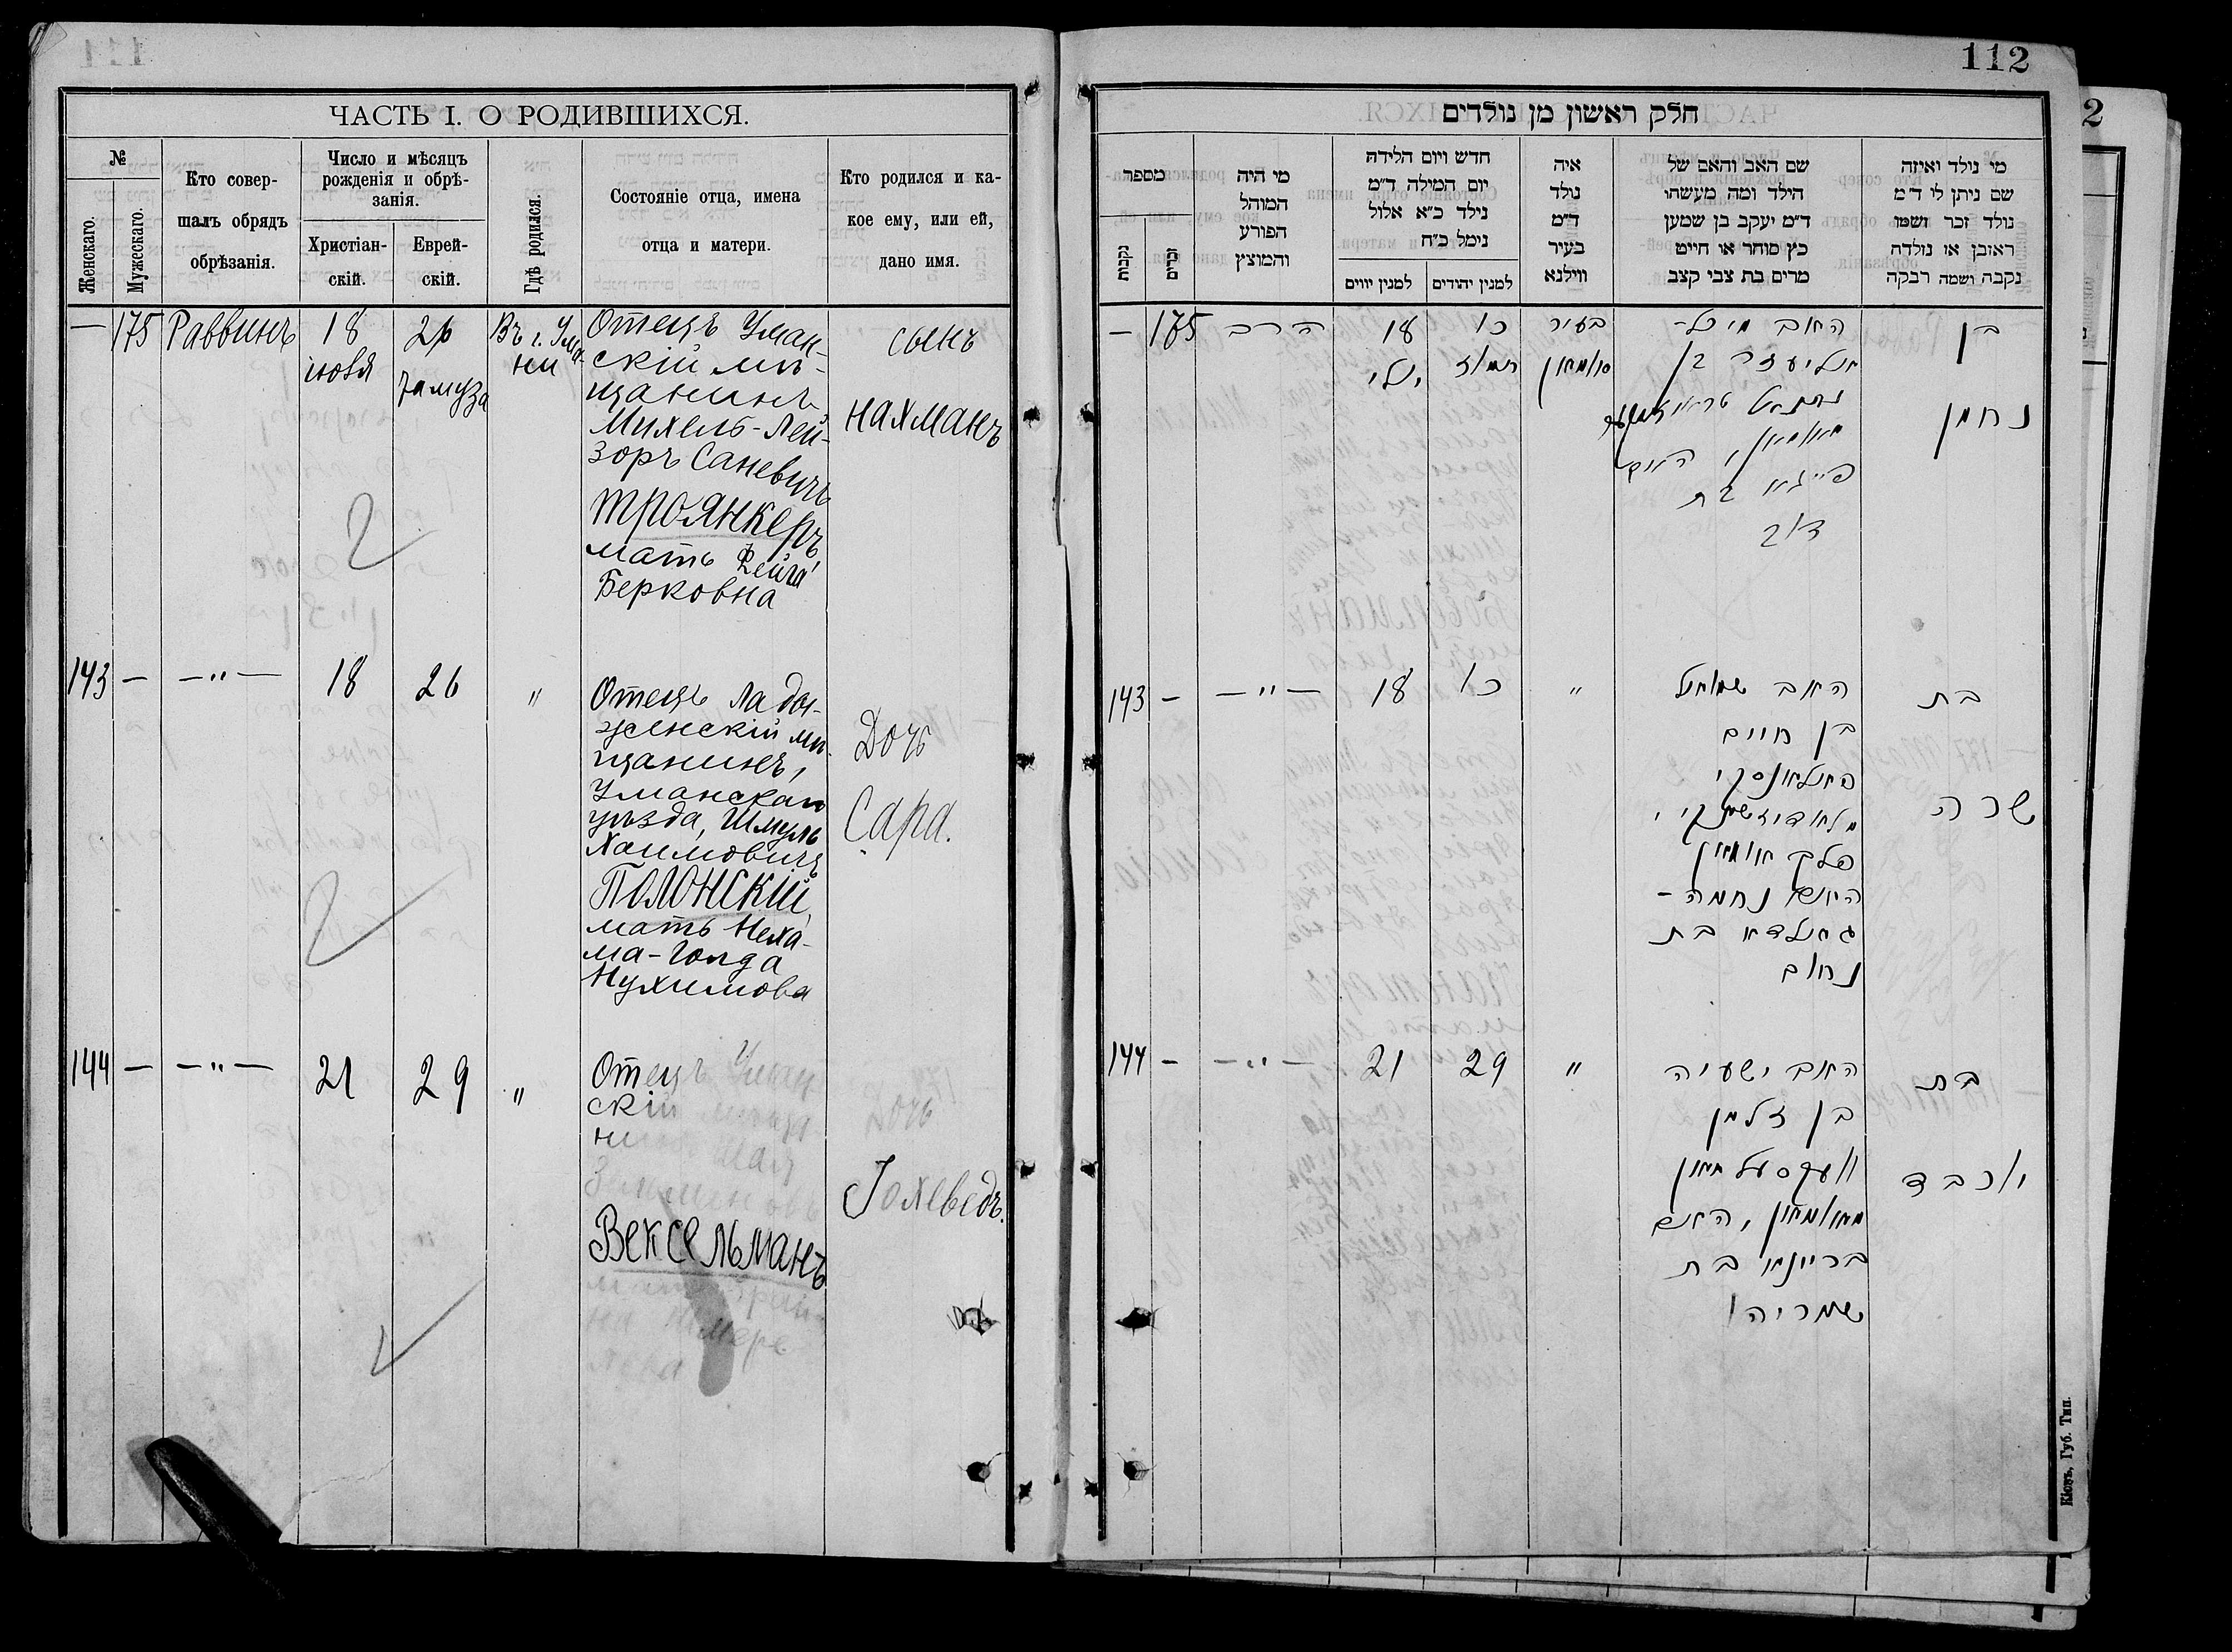 112
ЧАСТЬ I. О РОДИВШИХСЯ.
№
Женскаго.
Мужескаго.
Кто совер-
шалъ обрядъ
обрѣзанія.
Число и мѣсяцъ
рожденія и обрѣ-
занія.
Христіан-
скій.
Еврей-
скій.
Гдѣ родился.
Состояніе отца, имена
отца и матери.
Кто родился и ка-
кое ему, или ей,
дано имя.
— 175 Раввинъ
18
іюля
26
тамуза
Въ г. Ума-
ни
Отецъ Уман-
скій мѣ-
щанинъ
Михель-Лей-
зоръ Саневичъ
Троянкеръ,
мать Фейга
Берковна
сынъ
Нахманъ
143 — —"— 18 26 "
Отецъ Лады-
женскій мѣ-
щанинъ,
Уманскаго
уѣзда, Шмуль
Хаимовичъ
Полонскій,
мать Неха-
ма-Голда
Нухимова
Дочь
Сара.
144 — —"— 21 29 "
Отецъ Уман-
скій
Вексельманъ
дочь
Іохеведъ.
חלק ראשון מן נולדים
מי נולד ואיזה
שם ניתן לו ד״מ
נולד זכר ושמו
ראובן או נולדה
נקבה ושמה רבקה
שם האב והאם של
הילד ומה מעשהו
ד״מ יעקב בן שמען
כץ סוחר או חייט
מרים בת צבי קצב
איה
נולד
ד״מ
בעיר
ווילנא
חדש ויום הלידה
יום המילה ד״מ
נילד כ״א אלול
נימל כ״ח
למנין יהודים
למנין יווים
מי היה
המוהל
הפורע
והמוצץ
מספר
זכרים
נקבות
בן
נחמן
האב מיכל-
אליעזר בן
האם
פייגא בת
דוב
בעיר
אומאן
כו
תמוז
18
יולי
הרב
175 —
בת
שרה
האב שמואל
בן חיים
פאלאנסקי
פלך אומאן
האם נחמה-
גאלדא בת
נחום
"
כו
18
—"—
— 143
בת
יוכבד
האב ישעיה
בן זלמן
וועקסעלמאן
מאומאן, האם
בריינא בת
שמריהו
"
29
21
—"—
— 144
Кіевъ, Губ. Тип.